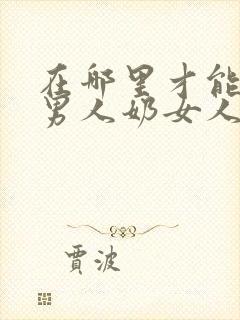 在哪里才能
男人奶女人
賈波